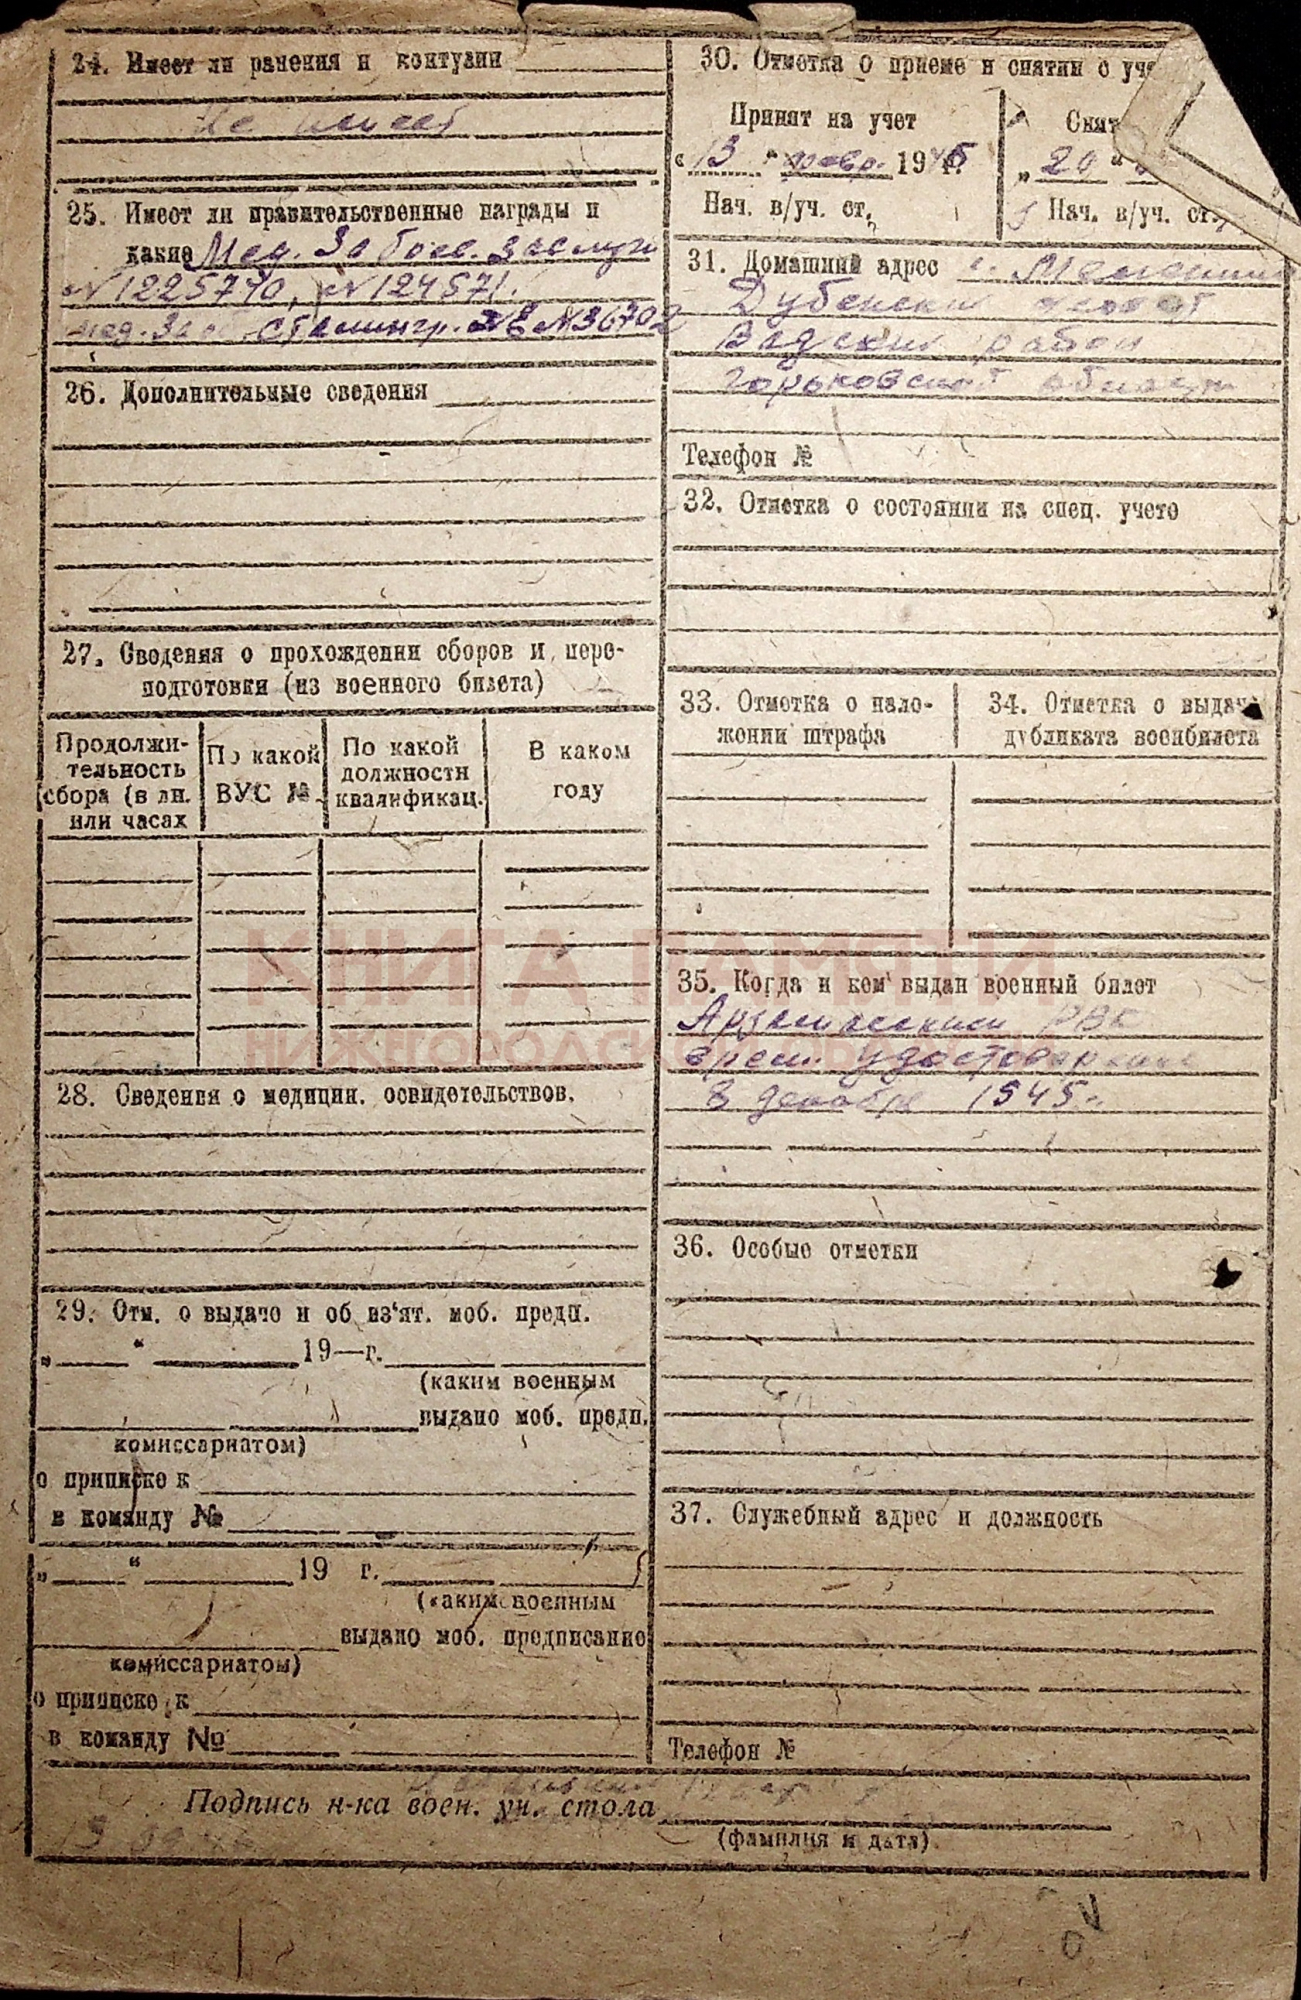 24. Имеет ли ранения и контузии
Не имеет
25. Имеет ли правительственные награды и
какие Мед. За боев. заслуги
№1225740, №124571.
мед. За о. Сталингр. № 36702
26. Дополнительные сведения
27. Сведения о прохождении сборов и пере-
подготовки (из военного билета)
Продолжи-
тельность
сбора (в дн.
или часах
По какой
ВУС №
По какой
должности
квалификац.
В каком
году
28. Сведения о медицин. освидетельствов.
29. Отм. о выдаче и об из'ят. моб. предп.
„ “ 19—г.
(каким военным
выдано моб. предп.
комиссариатом)
о приписке к
в команду №
„ “ 19 г.
(каким военным
выдано моб. предписание
комиссариатом)
о приписке к
в команду №
30. Отметка о приеме и снятии с уч
Принят на учет
„13“ февр. 1946
Нач. в/уч. ст.
Снят
„20“
Нач. в/уч. ст.
31. Домашний адрес с.
Дубенский
Вадский район
Горьковской области
Телефон №
32. Отметка о состоянии на спец. учете
33. Отметка о нало-
жении штрафа
34. Отметка о выдаче
дубликата военбилета
35. Когда и кем выдан военный билет
Арзамасским РВК
врем. удостоверение
в декабре 1945г.
36. Особые отметки
37. Служебный адрес и должность
Телефон №
Подпись н-ка воен. уч. стола
(фамилия и дата)
КНИГА ПАМЯТИ
НИЖЕГОРОДСКОЙ ОБЛАСТИ